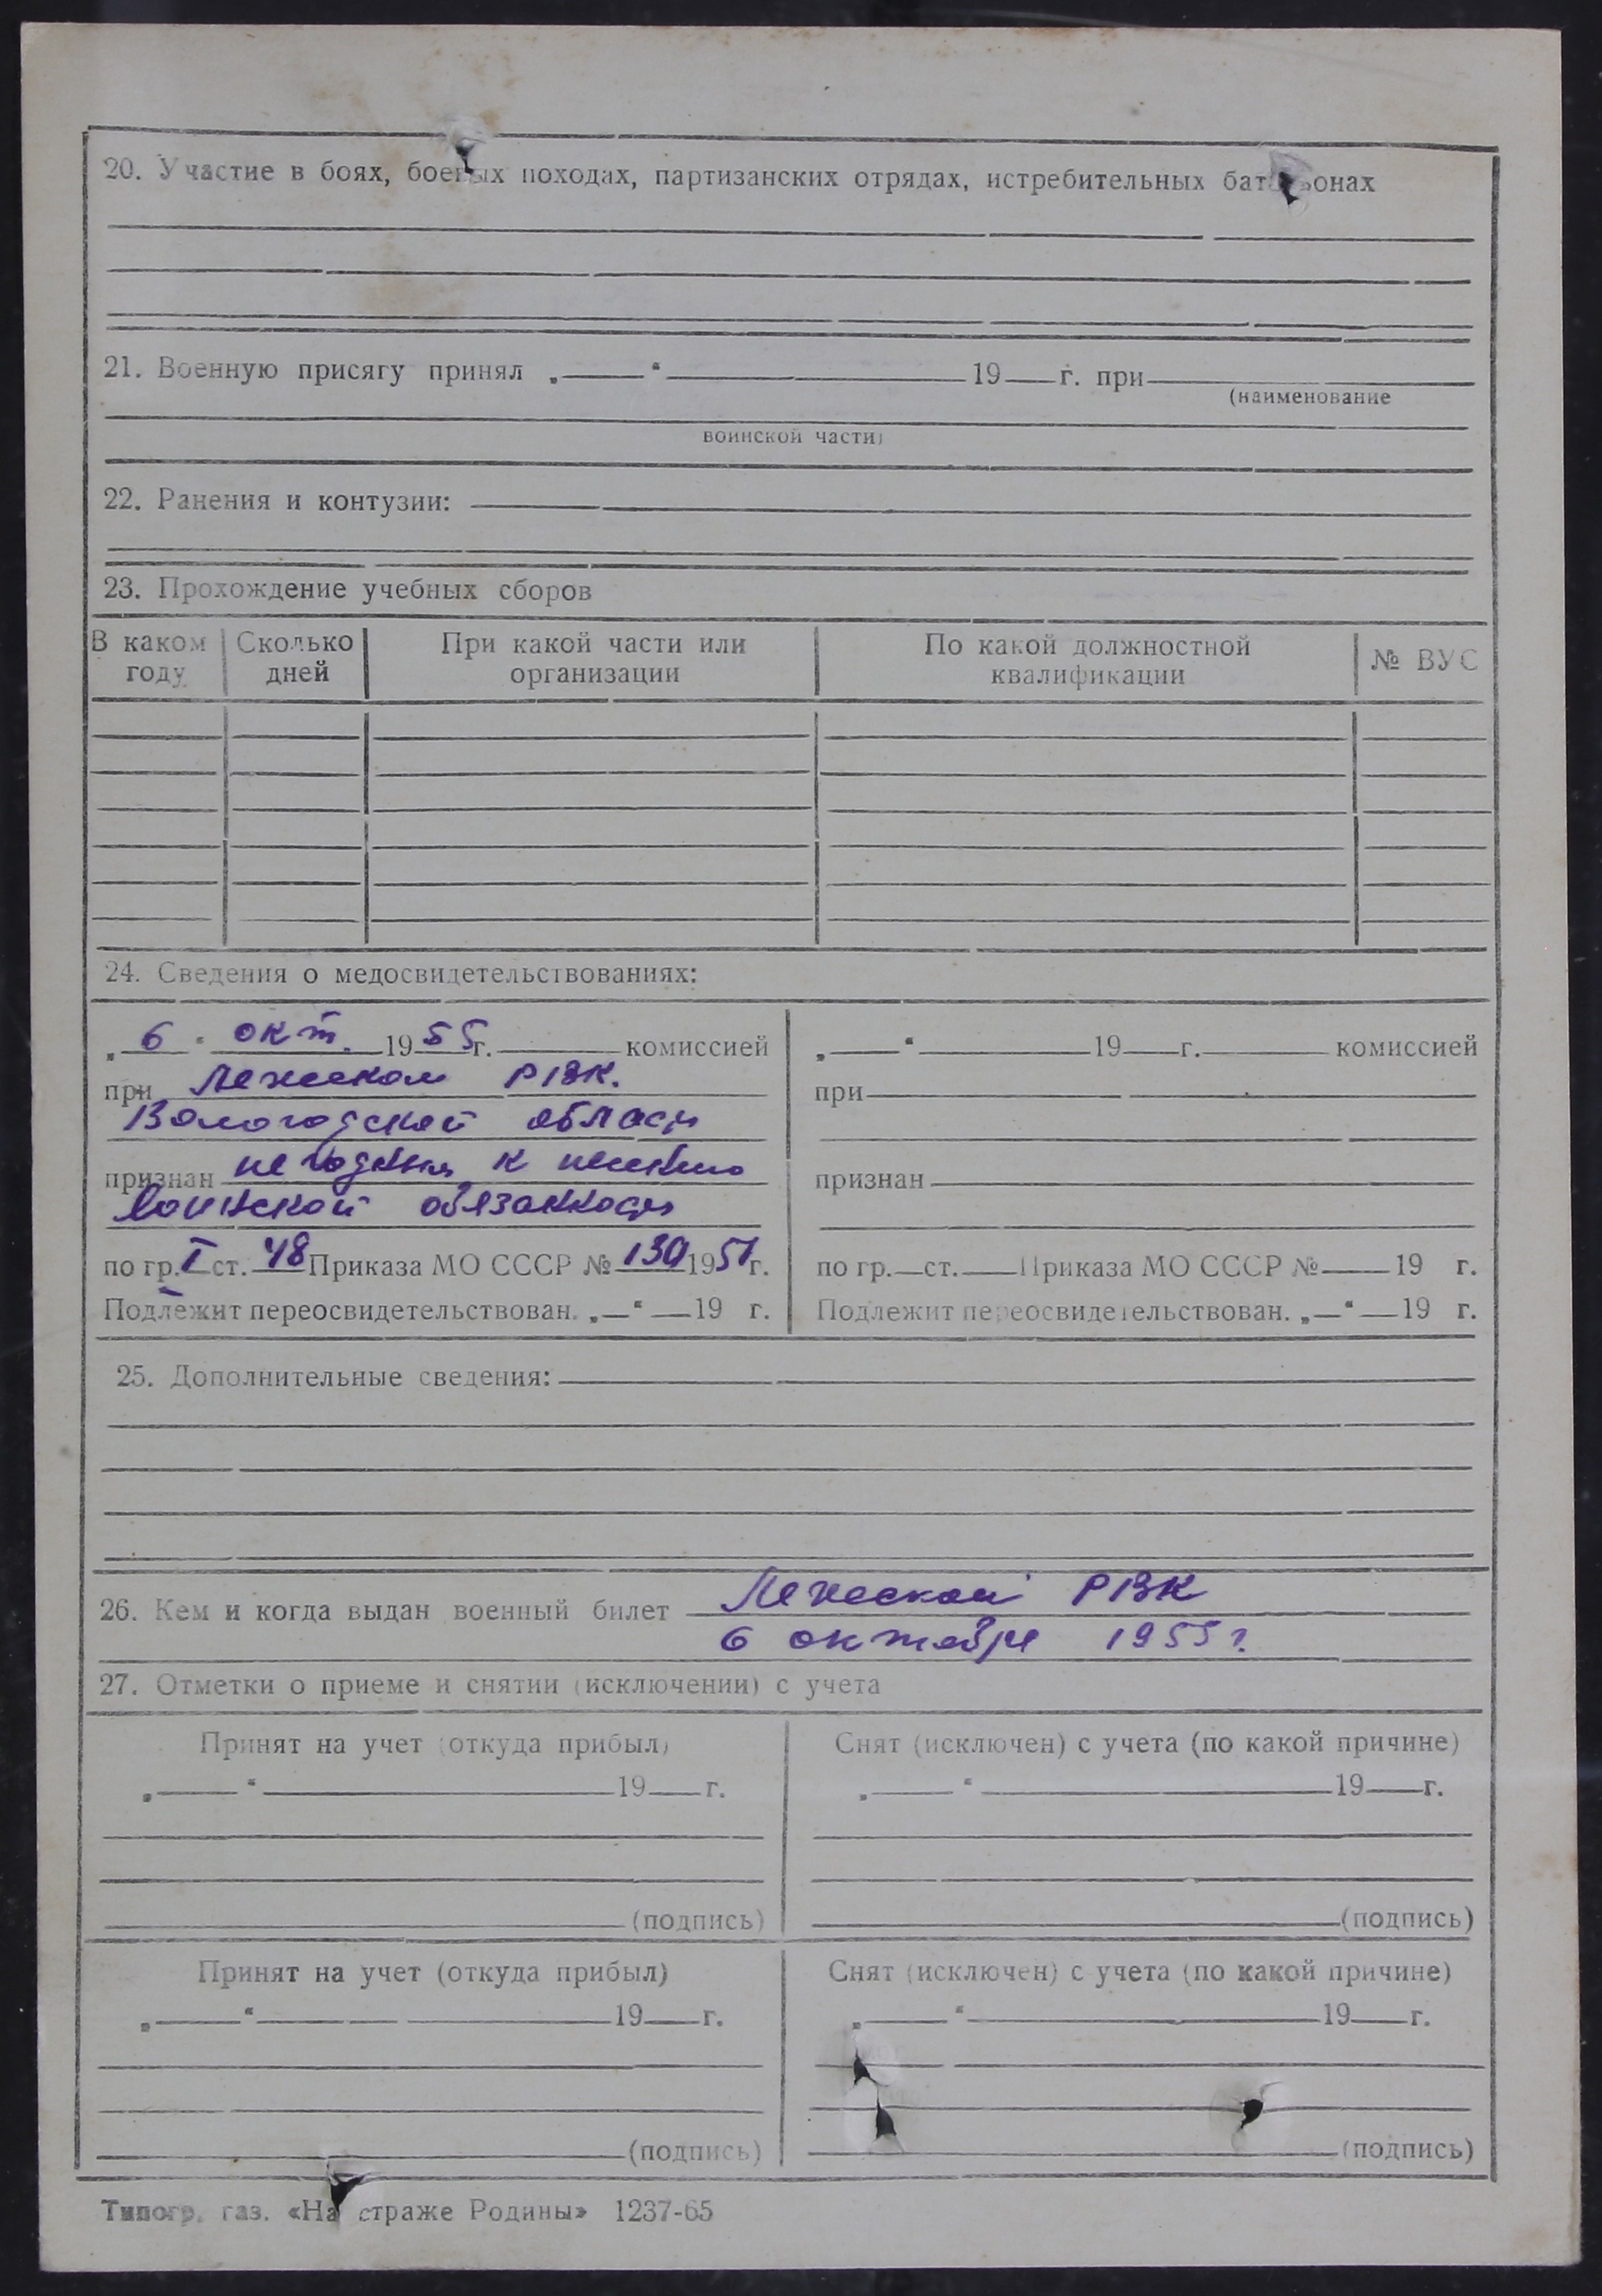 20. Участие в боях, боевых походах, партизанских отрядах, истребительных батальонах
21. Военную присягу принял „ “ 19 г. при
(наименование
воинской части)
22. Ранения и контузии:
23. Прохождение учебных сборов
В каком году Сколько дней При какой части или организации По какой должностной квалификации № ВУС
24. Сведения о медосвидетельствованиях:
„6“ окт. 1955г. комиссией
при Лежском РВК.
Вологодской области
признан не годным к несению
воинской обязанности
по гр. I ст. 48 Приказа МО СССР № 130 1951г.
Подлежит переосвидетельствован. „ “ 19 г.
„ “ 19 г. комиссией
при
признан
по гр. ст. Приказа МО СССР № 19 г.
Подлежит переосвидетельствован. „ “ 19 г.
25. Дополнительные сведения:
26. Кем и когда выдан военный билет Лежский РВК
6 октября 1955 г.
27. Отметки о приеме и снятии (исключении) с учета
Принят на учет (откуда прибыл)
„ “ 19 г.
(подпись)
Снят (исключен) с учета (по какой причине)
„ “ 19 г.
(подпись)
Принят на учет (откуда прибыл)
„ “ 19 г.
(подпись)
Снят (исключен) с учета (по какой причине)
„ “ 19 г.
(подпись)
Типогр. газ. «На страже Родины» 1237-65